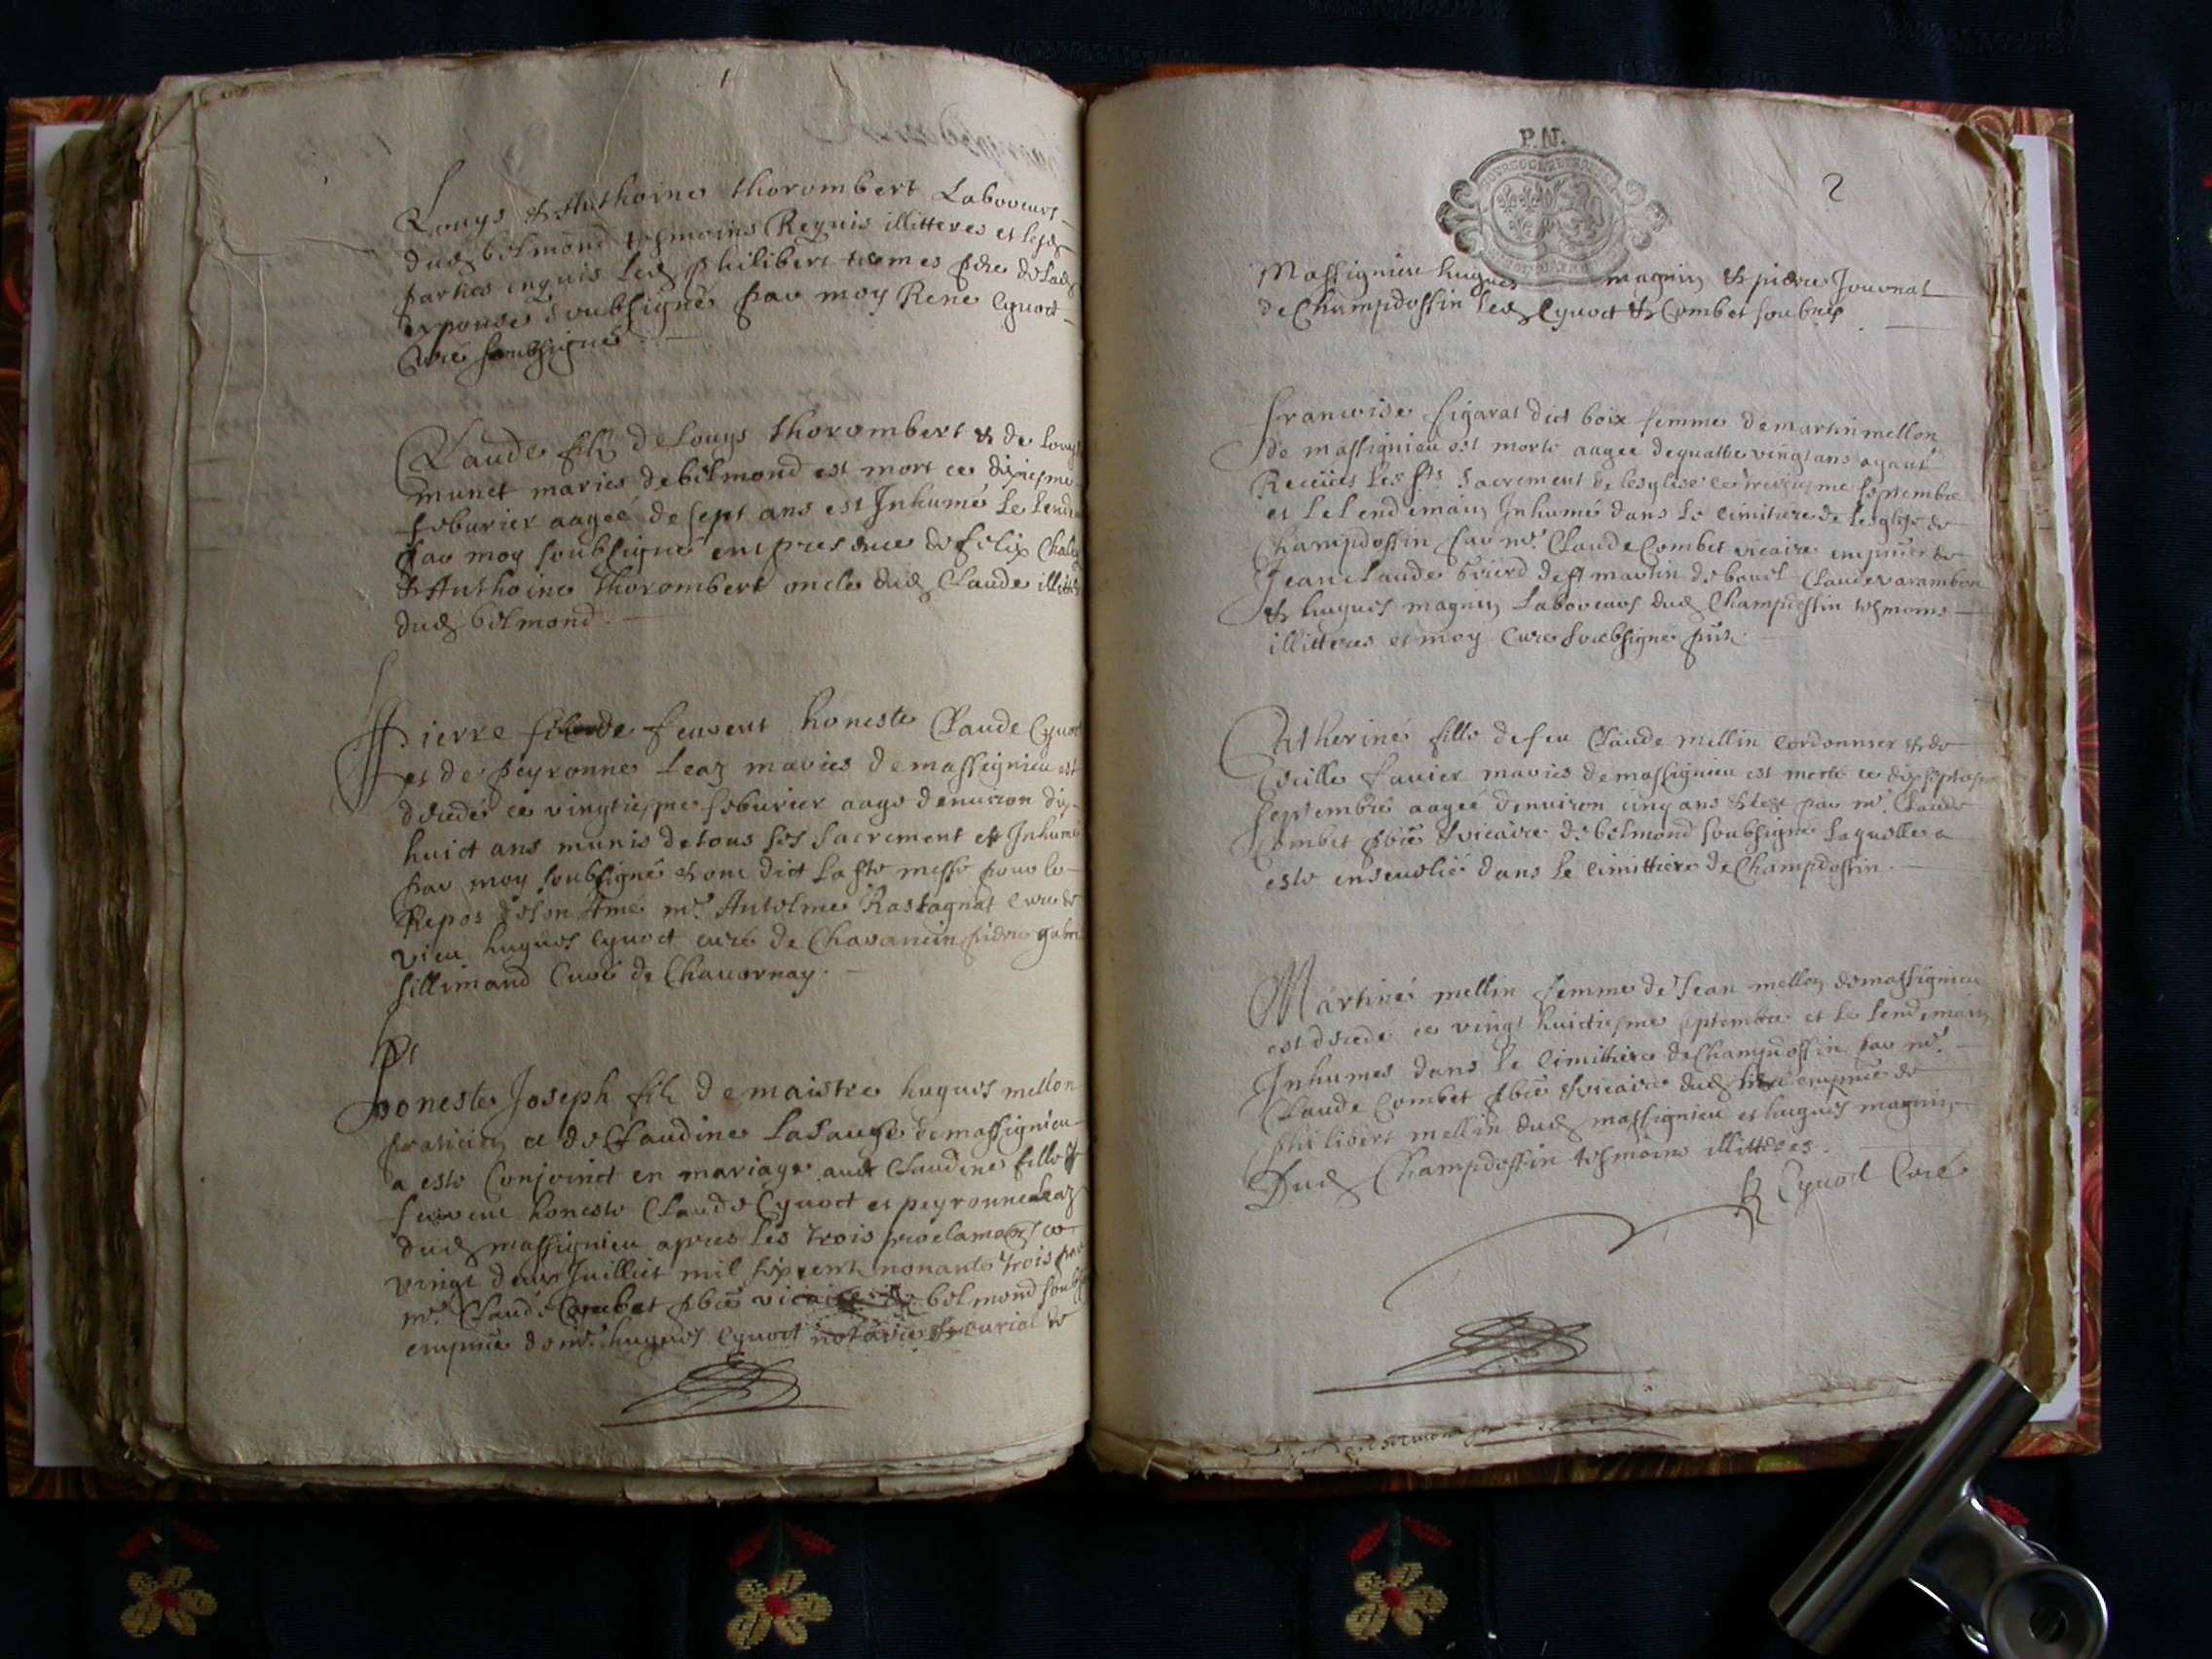 Louys & Anthoine thorombert Laboveurs
dud belmond tesmoins Requis illitteres et lesd
parties enquis led philibert pere de lad
espouse soubsigné par moy Rene Cyvoct
Curé soubsigné
Claude filz de Louys thorombert & de Louyse
munet maries de belmond est mort ce dixiesme
feburier aagée de sept ans est Inhumé le lendemain
par moy soubsigné en presence de felix
& Anthoine thorombert oncle dud Claude illitteres
dud belmond.
Pierre de feu honeste Claude Cyvoct
et de peyronne Leaz maries de massignieu est
decedé ce vingtiesme feburier aage denviron dix
huict ans munis de tous ses sacrement et Inhumé
par moy soubsigné & ont dict la ste messe pour le
Repos de son Ame mr Antelme Rastagnat curé de
vieu hugues Cyvoct curé de Chavanein
sillimand Curé de Chavornay.
honeste Joseph filz de maistre hugues mellon
praticien et de Claudine Lasausse de massignieu
a esté Conjoinct en mariage avec Claudine fille de
honeste Claude Cyvoct et peyronne Leaz
dud massignieu apres les trois proclamaons ce
vingt deux Juilliet mil six cent nonante trois par
mr Claude Combet pbre vicaire de belmond
en pnce de mr hugues Cyvoct notaire & curial de
P.N.
2
Massignieu hugues magnin & pierre Journal
de Champdossin led Cyvoct & Combet soubnes
francoise figarat dict boix femme de martin mellon
de massignieu est morte aagee de quattre vingt ans ayant
Receües les sts sacrement de lesglise ce septembre
et le lendemain Inhumé dans le cimitiere de lesglise de
Champdossin par mr Claude Combet vicaire en pnce de
Jean claude de st martin de bavel Claude
& hugues magnin Laboveurs dud Champdossin tesmoins
illitteres et moy Curé soubsigné pnt.
Catherine fille de feu Claude mellin Cordonnier & de
favier maries de massignieu est morte ce
septembre aagée denviron cinq ans par mr Claude
Combet pbre & vicaire de belmond soubsigné laquelle a
esté ensevelié dans le cimittiere de Champdossin.
Martine mellin femme de Jean mellon de massignieu
est decede ce vingt huictiesme septembre et le lendemain
Inhumes dans le cimittiere de Champdossin par mr
Claude Combet pbre & vicaire dud en pnce de
philibert mellin dud massignieu et hugues magnin
Dud Champdossin tesmoins illitteres.
R Cyvoct Curé